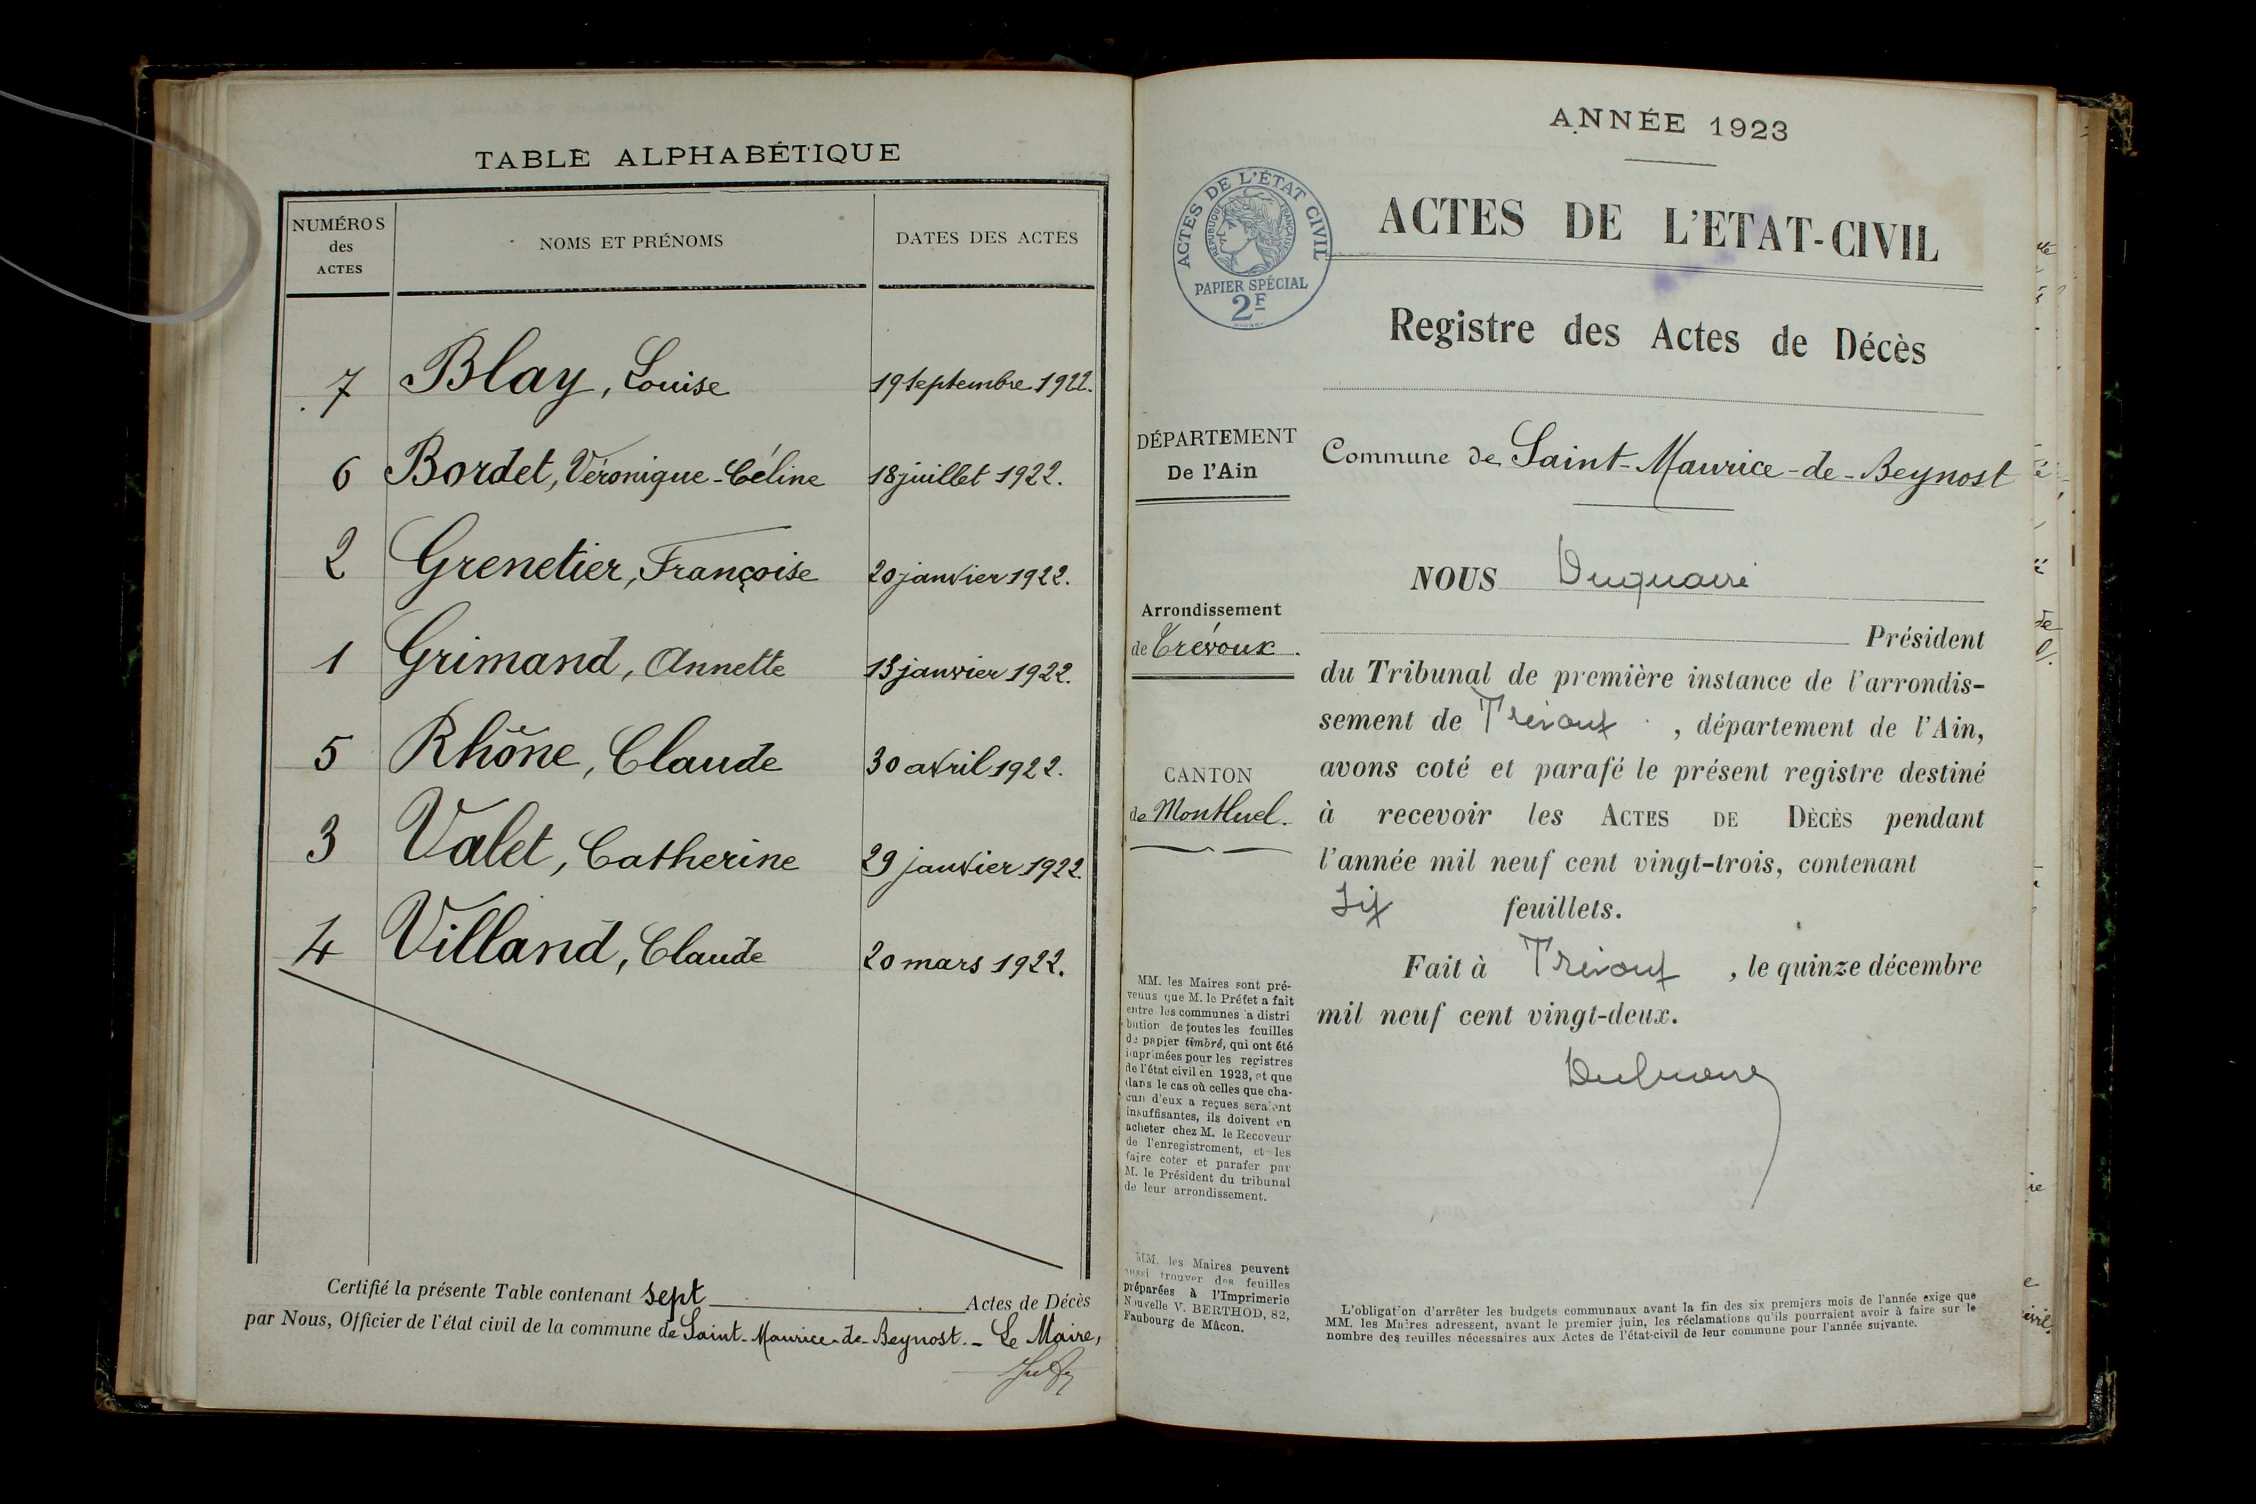 TABLE ALPHABÉTIQUE
NUMÉROS
des
ACTES
NOMS ET PRÉNOMS
DATES DES ACTES
7 Blay, Louise 19 septembre 1922.
6 Bordet, Véronique-Céline 18 juillet 1922.
2 Grenetier, Françoise 20 janvier 1922.
1 Grimand, Annette 13 janvier 1922.
5 Rhône, Claude 30 avril 1922.
3 Valet, Catherine 29 janvier 1922.
4 Villand, Claude 20 mars 1922.
Certifié la présente Table contenant sept Actes de Décès
par Nous, Officier de l'état civil de la commune de Saint-Maurice-de-Beynost. - Le Maire,
ANNÉE 1923
ACTES DE L'ÉTAT CIVIL
RÉPUBLIQUE FRANÇAISE
PAPIER SPÉCIAL
2F
ACTES DE L'ETAT-CIVIL
Registre des Actes de Décès
DÉPARTEMENT
De l'Ain
Commune de Saint-Maurice-de-Beynost
Arrondissement
de Trévoux.
CANTON
de Montluel.
NOUS
Président
du Tribunal de première instance de l'arrondis-
sement de Trévoux, département de l'Ain,
avons coté et parafé le présent registre destiné
à recevoir les ACTES DE DÉCÈS pendant
l'année mil neuf cent vingt-trois, contenant
six feuillets.
Fait à Trévoux, le quinze décembre
mil neuf cent vingt-deux.
MM. les Maires sont pré-
venus que M. le Préfet a fait
entre les communes la distri
bution de toutes les feuilles
de papier timbré, qui ont été
imprimées pour les registres
de l'état civil en 1923, et que
dans le cas où celles que cha-
cun d'eux a reçues seraient
insuffisantes, ils doivent en
acheter chez M. le Receveur
de l'enregistrement, et les
faire coter et parafer par
M. le Président du tribunal
de leur arrondissement.
MM. les Maires peuvent
aussi trouver des feuilles
préparées à l'Imprimerie
Nouvelle V. BERTHOD, 82,
Faubourg de Mâcon.
L'obligation d'arrêter les budgets communaux avant la fin des six premiers mois de l'année exige que
MM. les Maires adressent, avant le premier juin, les réclamations qu'ils pourraient avoir à faire sur le
nombre des feuilles nécessaires aux Actes de l'état-civil de leur commune pour l'année suivante.